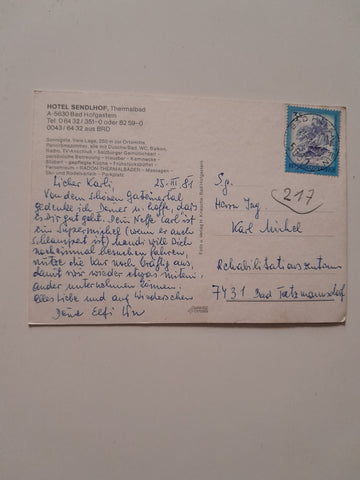 HOTEL SENDLHOF, Thermalbad
A-5630 Bad Hofgastein
Tel. 0 64 32 / 351-0 oder 82 59-0
0043 / 64 32 aus BRD
Sonnigste, freie Lage, 250 m zur Ortsmitte,
Panoramazimmer, alle mit Dusche/Bad, WC, Balkon,
Radio, TV-Anschluß – Salzburger Gemütlichkeit
persönliche Betreuung – Hausbar – Kaminecke –
Stüberl – gepflegte Küche – Frühstücksbuffet –
Panoramaum – RADON-THERMALBÄDER – Massagen –
Ski- und Rodelverleih – Parkplatz.
Lieber Karli, 25. III 81
Von dem schönen Gasteinertal
gedenke ich Deiner u. hoffe, daß
es Dir gut geht. Dein Neffe Carl ist
ein Supermichel (wenn er auch
Schlampert ist) Mandi will Dich
nocheinmal besuchen fahren,
nütze die Kur noch kräftig aus,
damit wir wieder etwas mitein-
ander unternehmen können.
Alles Liebe und auf Wiedersehen
Deine Elfi
Foto u. Verlag
Bad Hofgastein
S. g.
Herrn Ing.
Karl Michel
Rehabilitationszentrum
7431 Bad Tatzmannsdorf
217
BAD